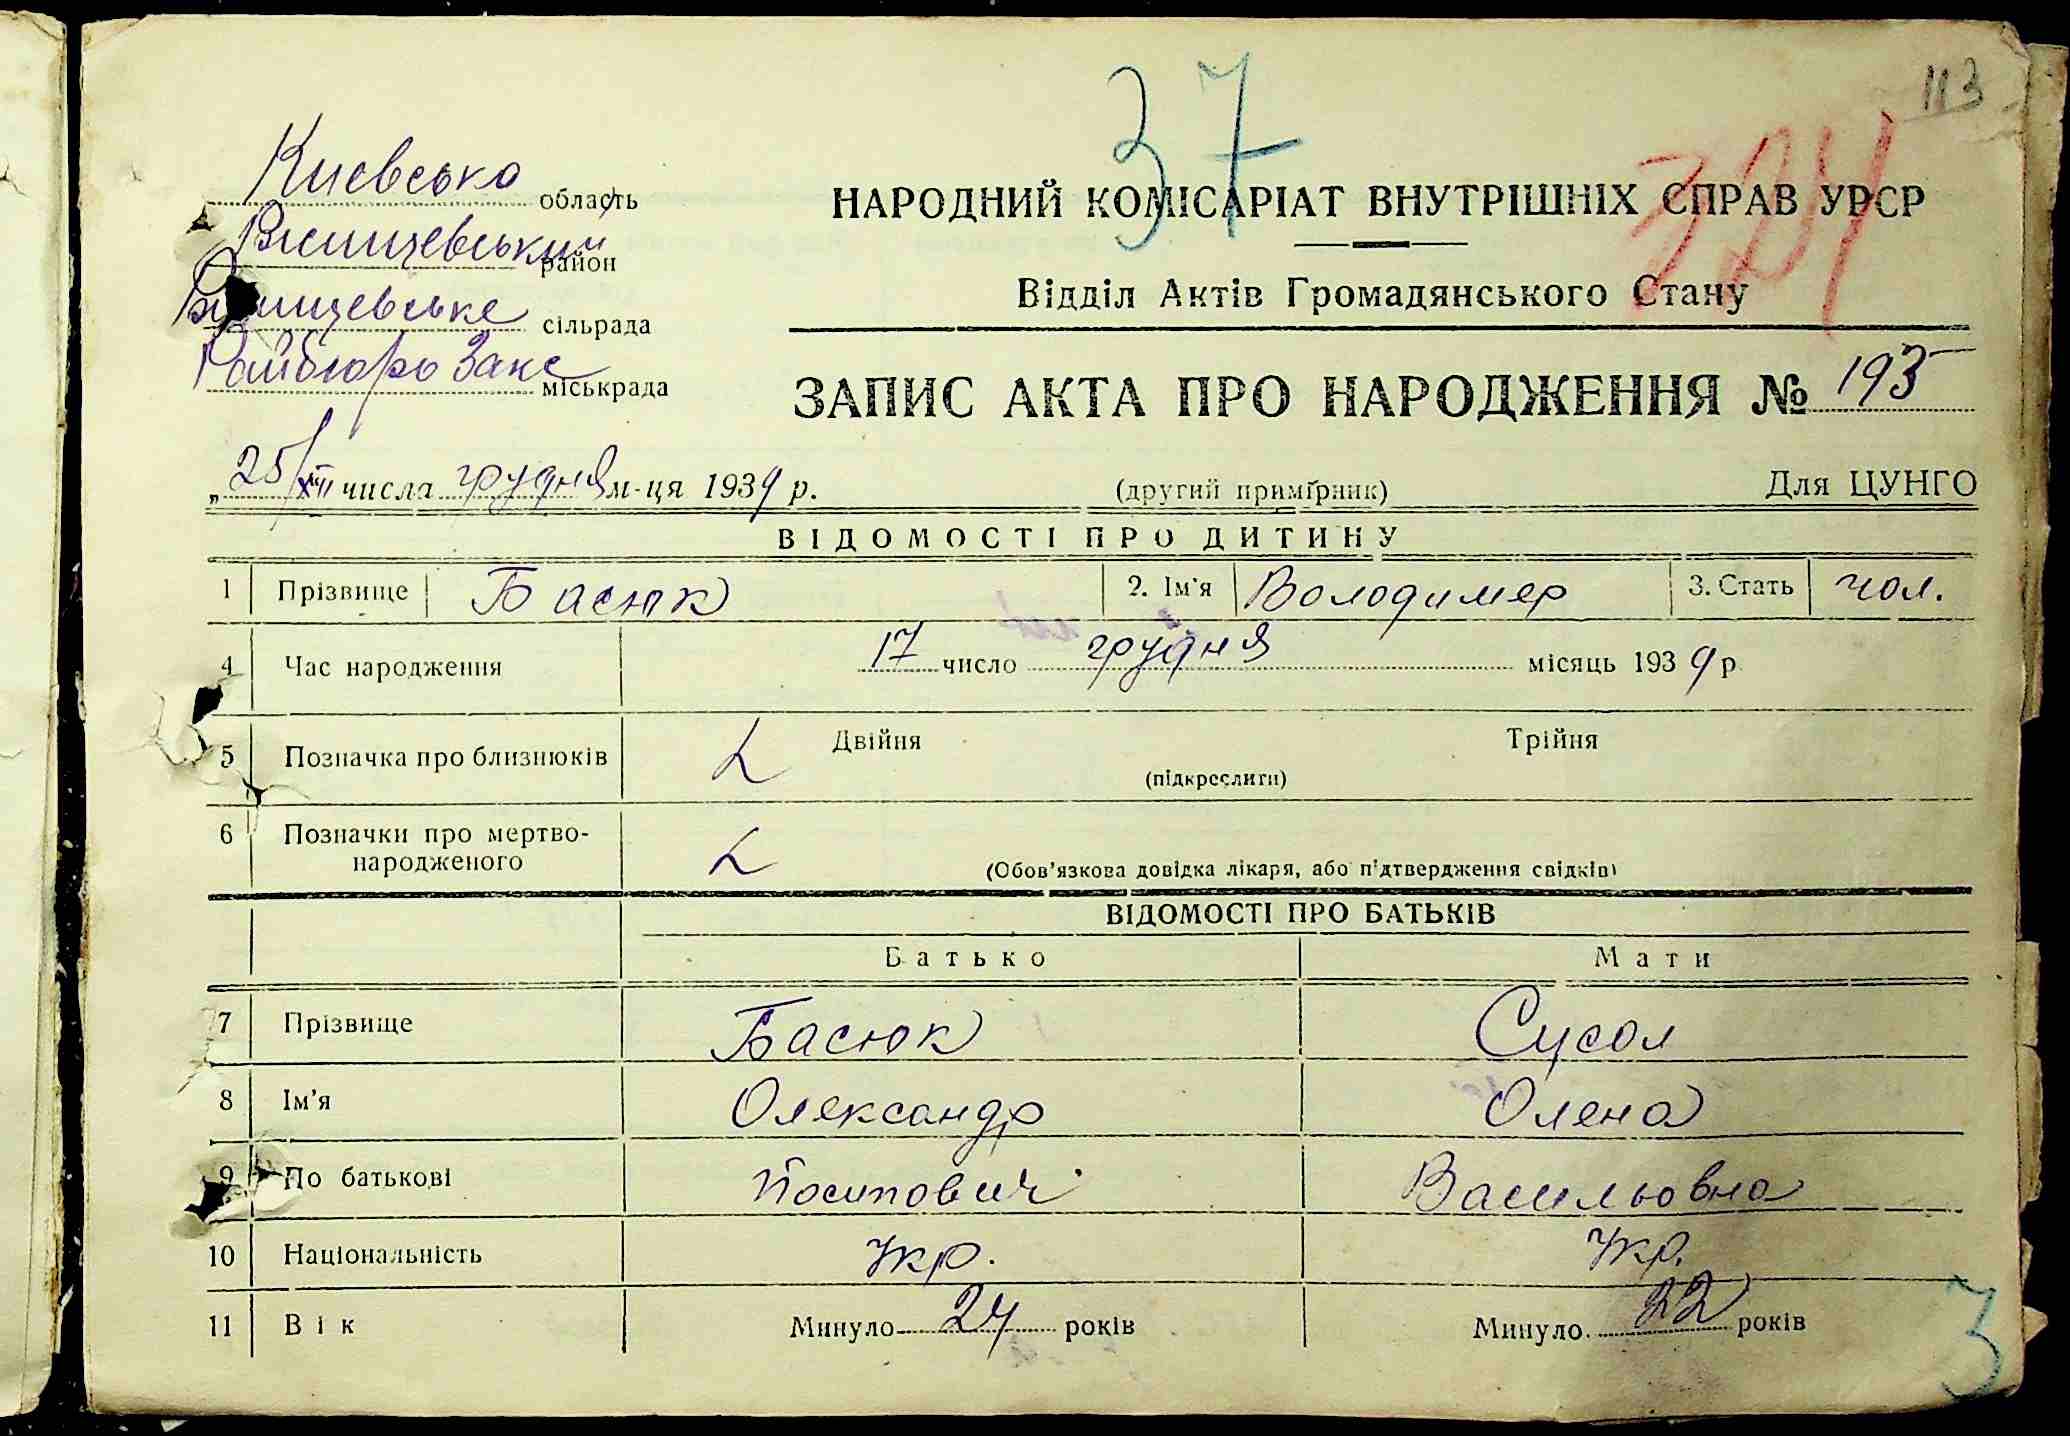 113
37
324
Киевсько область
НАРОДНИЙ КОМІСАРІАТ ВНУТРІШНІХ СПРАВ УРСР
район
Відділ Актів Громадянського Стану
сільрада
Райбюро Загс міськрада
ЗАПИС АКТА ПРО НАРОДЖЕННЯ № 193
„ 25/XII числа грудня м-ця 1939 р. (другий примірник) Для ЦУНГО
ВІДОМОСТІ ПРО ДИТИНУ
1 Прізвище Басюк 2. Ім'я Володимер 3. Стать чол.
4 Час народження 17 число грудня місяць 1939 р.
5 Позначка про близнюків Двійня Трійня
(підкреслити)
6 Позначки про мертво-
народженого (Обов'язкова довідка лікаря, або підтвердження свідків)
ВІДОМОСТІ ПРО БАТЬКІВ
Батько Мати
7 Прізвище Басюк Сусол
8 Ім'я Олександр Олена
9 По батькові Йосипович Васильовна
10 Національність Укр. Укр.
11 Вік Минуло 24 років Минуло 22 років
3